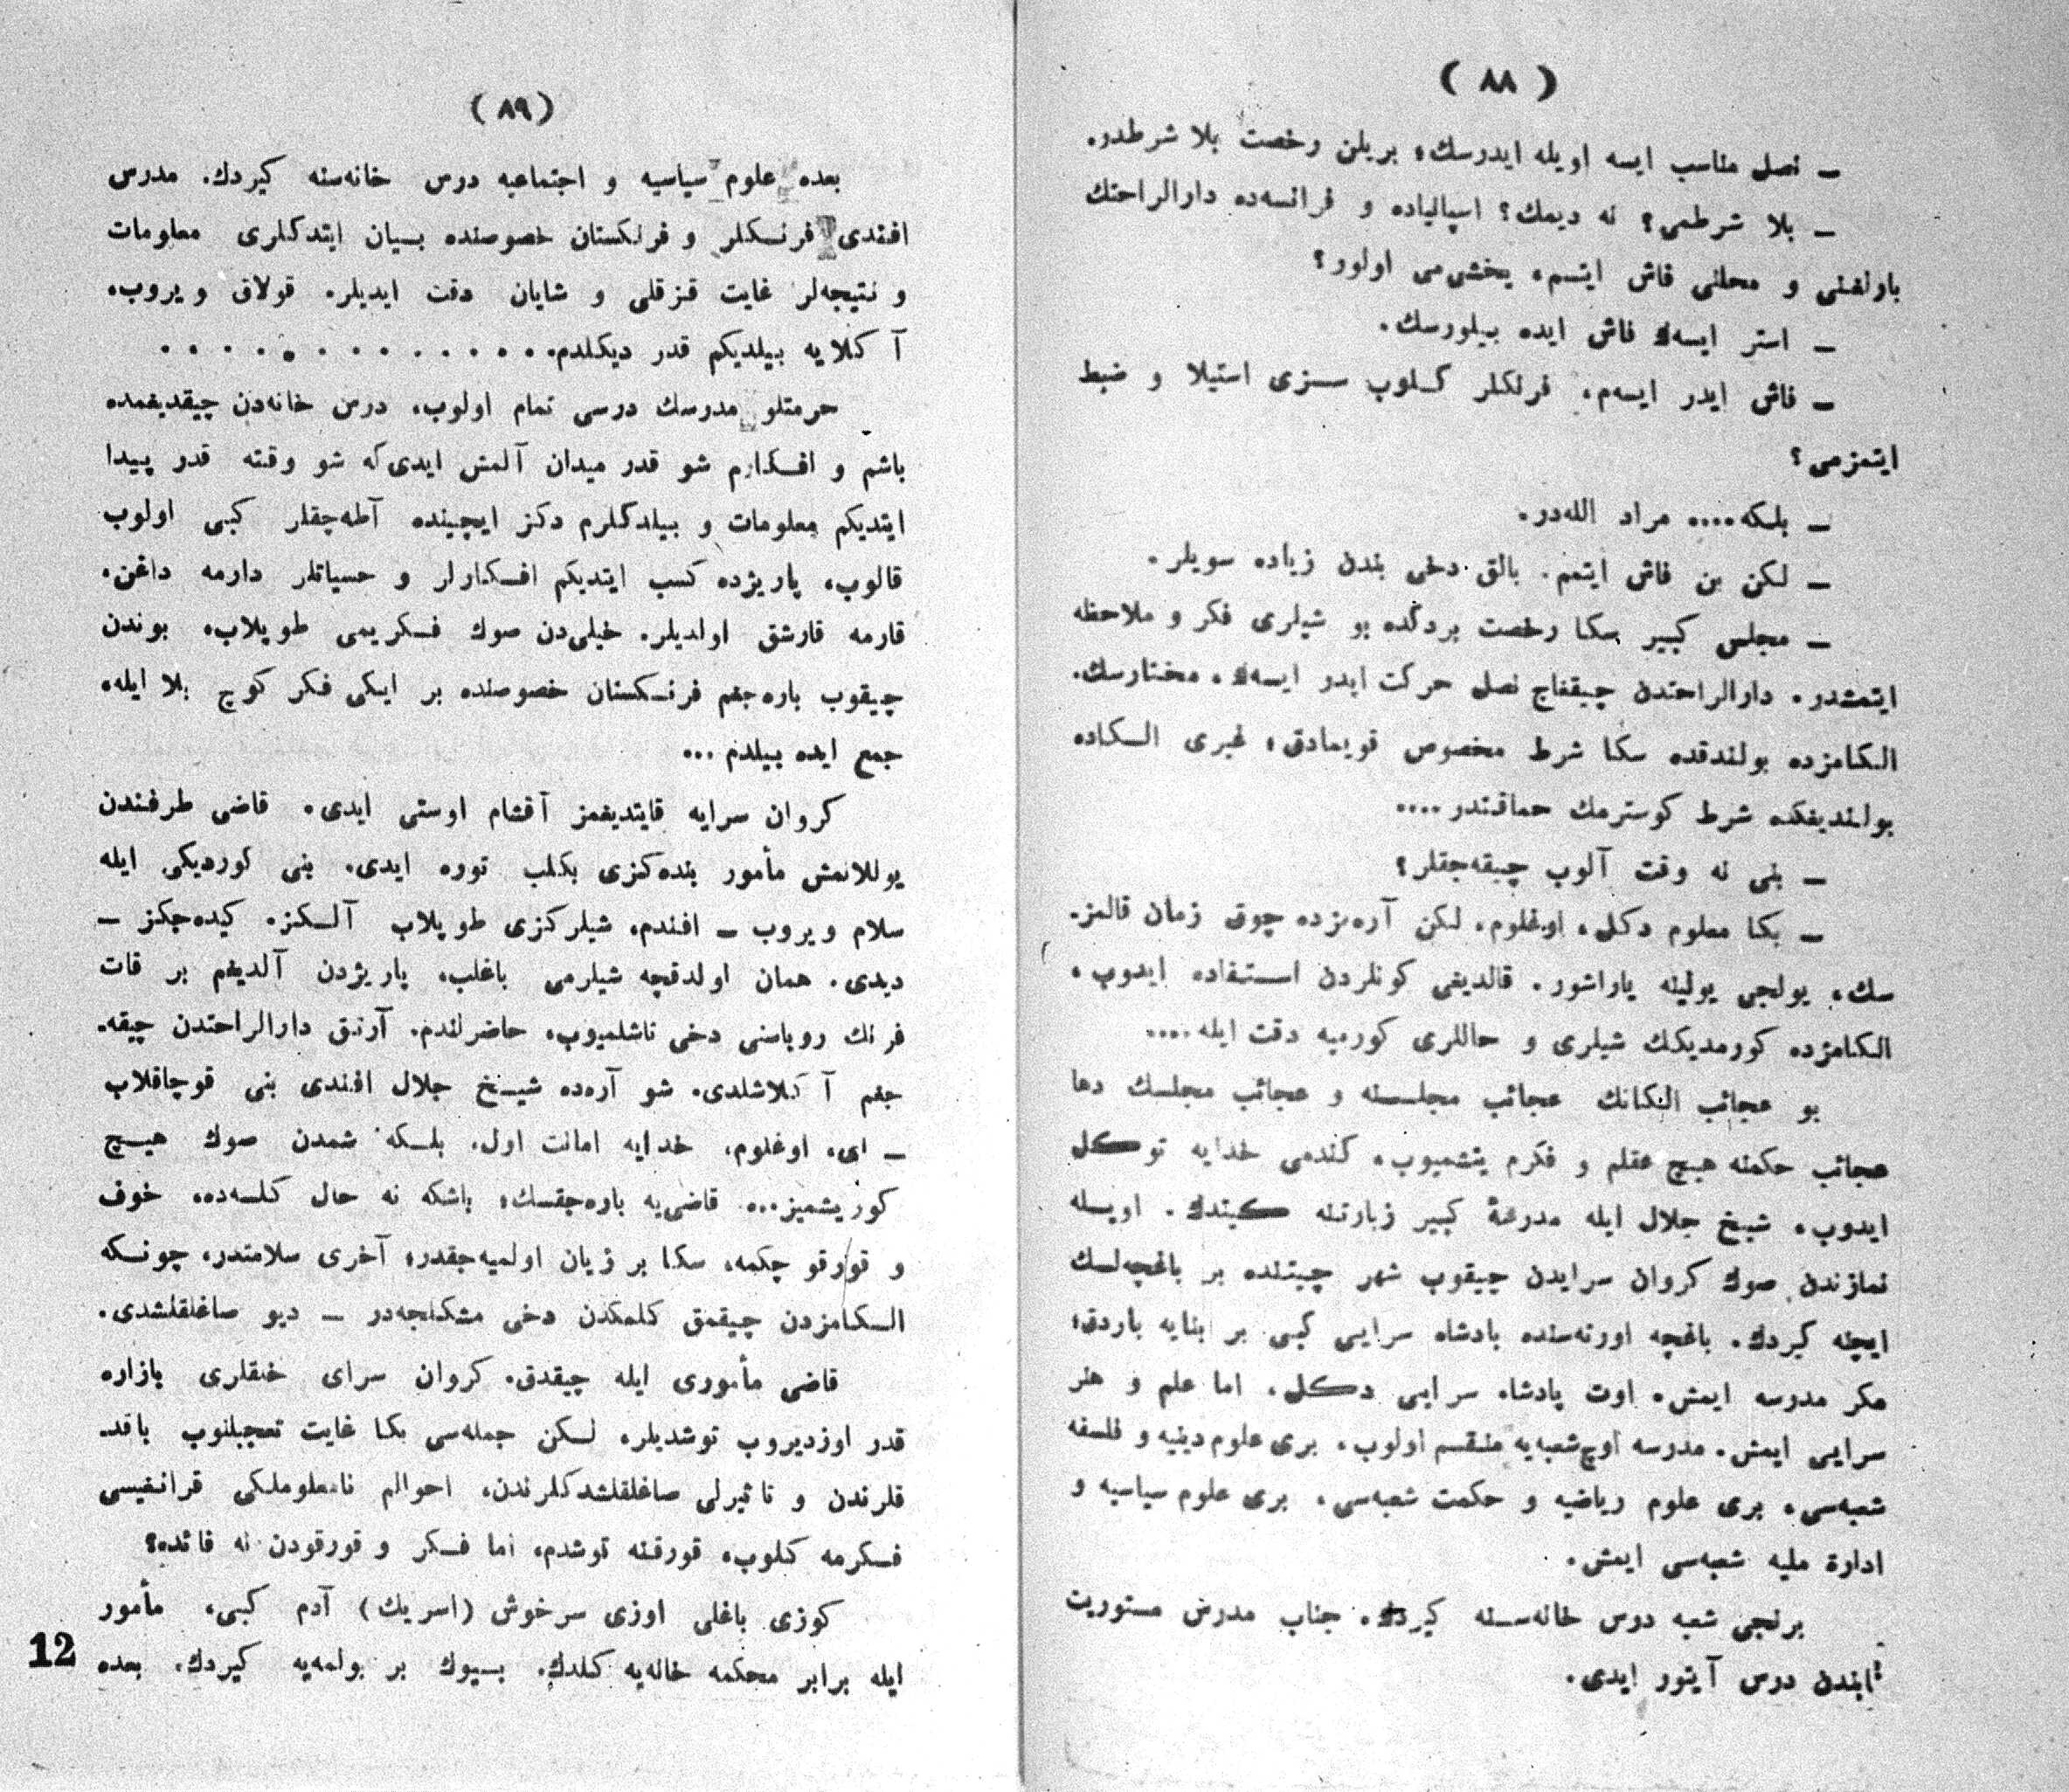 ( ٨٨ )
ـ نصل مناسب ايسه اويله ايدرسك؛ بريلن رخصت بلا شرطدر.
ـ بلا شرطمى؟ نه ديمك؟ اسپالياده و فرانسه‌ده دارالراحتك
بارلغنى و محلنى فاش ايتسم، يخشى‌مى اولور؟
ـ استر ايسه‌ڭ فاش ايده بيلورسك.
ـ فاش ايدر ايسه‌م، فرنكلر كلوب سزى استيلا و ضبط
ايتمزمى؟
ـ بلكه.... مراد الله‌در.
ـ لكن بن فاش ايتمم. بالق دخى بندن زياده سويلر.
ـ مجلس كبير سكا رخصت بردكده بو شيلرى فكر و ملاحظه
ايتمشدر. دارالراحتدن چيقغاچ نصل حركت ايدر ايسه‌ڭ، مختارسك.
الكامزده بولندقده سكا شرط مخصوص قويمادق؛ غيرى الكاده
بولنديغكده شرط كوسترمك حماقتدر....
ـ بنى نه وقت آلوب چيقه‌جقلر؟
ـ بكا معلوم دكل، اوغلوم، لكن آره‌مزده چوق زمان قالمز.
سك، يولجى يولينه ياراشور. قالديغى كونلردن استفاده ايدوب،
الكامزده كورمديكك شيلرى و حاللرى كورميه دقت ايله....
بو عجائب الكانك عجائب مجلسنه و عجائب مجلسك دها
عجائب حكمنه هيچ عقلم و فكرم يتشميوب، كندمى خدايه توكل
ايدوب، شيخ جلال ايله مدرسۀ كبير زيارتنه كيتدك. اويله
نمازندن صوك كروان سرايدن چيقوب شهر چيتنده بر باغچه‌لك
ايچنه كيردك. باغچه اورته‌سنده بادشاه سرايى كبى بر بنايه باردق؛
مكر مدرسه ايمش، اوت پادشاه سرايى دكل، اما علم و هنر
سرايى ايمش. مدرسه اوچ شعبه‌يه منقسم اولوب، برى علوم دينيه و فلسفه
شعبه‌سى، برى علوم رياضيه و حكمت شعبه‌سى، برى علوم سياسيه و
ادارۀ مليه شعبه‌سى ايمش.
برنجى شعبه درس خانه‌سنه كيردك. جناب مدرس مستوريت
بابندن درس آيتور ايدى.
( ٨٩ )
بعده علوم سياسيه و اجتماعيه درس خانه‌سنه كيردك. مدرس
افندى فرنكلر و فرنكستان خصوصنده بيان ايتدكلرى معلومات
و نتيجه‌لر غايت قزقلى و شايان دقت ايديلر. قولاق ويروب،
آكلايه بيلديكم قدر ديكلدم. . . . . . . . . . . . . .
حرمتلو مدرسك درسى تمام اولوب، درس خانه‌دن چيقديغمده
باشم و افكارم شو قدر ميدان آلمش ايدى‌كه شو وقته قدر پيدا
ايتديكم معلومات و بيلدكلرم دكز ايچينده آطه‌جقلر كبى اولوب
قالوب، پاريژده كسب ايتديكم افكارلر و حسياتلر دارمه داغن،
قارمه قارشق اولديلر. خيلى‌دن صوك فكريمى طوپلاب، بوندن
چيقوب باره‌جغم فرنكستان خصوصنده بر ايكى فكر كوچ بلا ايله،
جمع ايده بيلدم ...
كروان سرايه قايتديغمز آقشام اوستى ايدى. قاضى طرفندن
يوللانمش مأمور بنده‌كزى بكلب توره ايدى. بنى كورديكى ايله
سلام ويروب ـ افندم، شيلركزى طوپلاب آلكز. كيده‌جكز ـ
ديدى. همان اولدقچه شيلرمى باغلب، پاريژدن آلديغم بر قات
فرنك روباسنى دخى تاشلميوب، حاضرلندم. آرتق دارالراحتدن چيقه‌ـ
جغم آكلاشلدى. شو آره‌ده شيخ جلال افندى بنى قوچاقلاب
ـ اى، اوغلوم، خدايه امانت اول، بلكه شمدن صوك هيچ
كوريشميز... قاضى‌يه باره‌جقسك؛ باشكه نه حال كلسه‌ده، خوف
و قورقو چكمه، سكا بر زيان اولميه‌جقدر؛ آخرى سلامتدر، چونكه
الكامزدن چيقمق كلمكدن دخى مشكلجه‌در ـ ديو صاغلقلشدى.
قاضى مأمورى ايله چيقدق. كروان سراى خلقلرى بازاره
قدر اوزديروب توشديلر، لكن جمله‌سى بكا غايت تعجبلنوب باقدـ
قلرندن و تاثيرلى صاغلقلشدكلرندن، احوالم نامعلوملكى قرانغيسى
فكرمه كلوب، قورقنه توشدم، اما فكر و قورقودن نه فائده؟
كوزى باغلى اوزى سرخوش (اسريك) آدم كبى، مأمور
ايله برابر محكمه خانه‌يه كلدك. بيوك بر بولمه‌يه كيردك، بعده
12